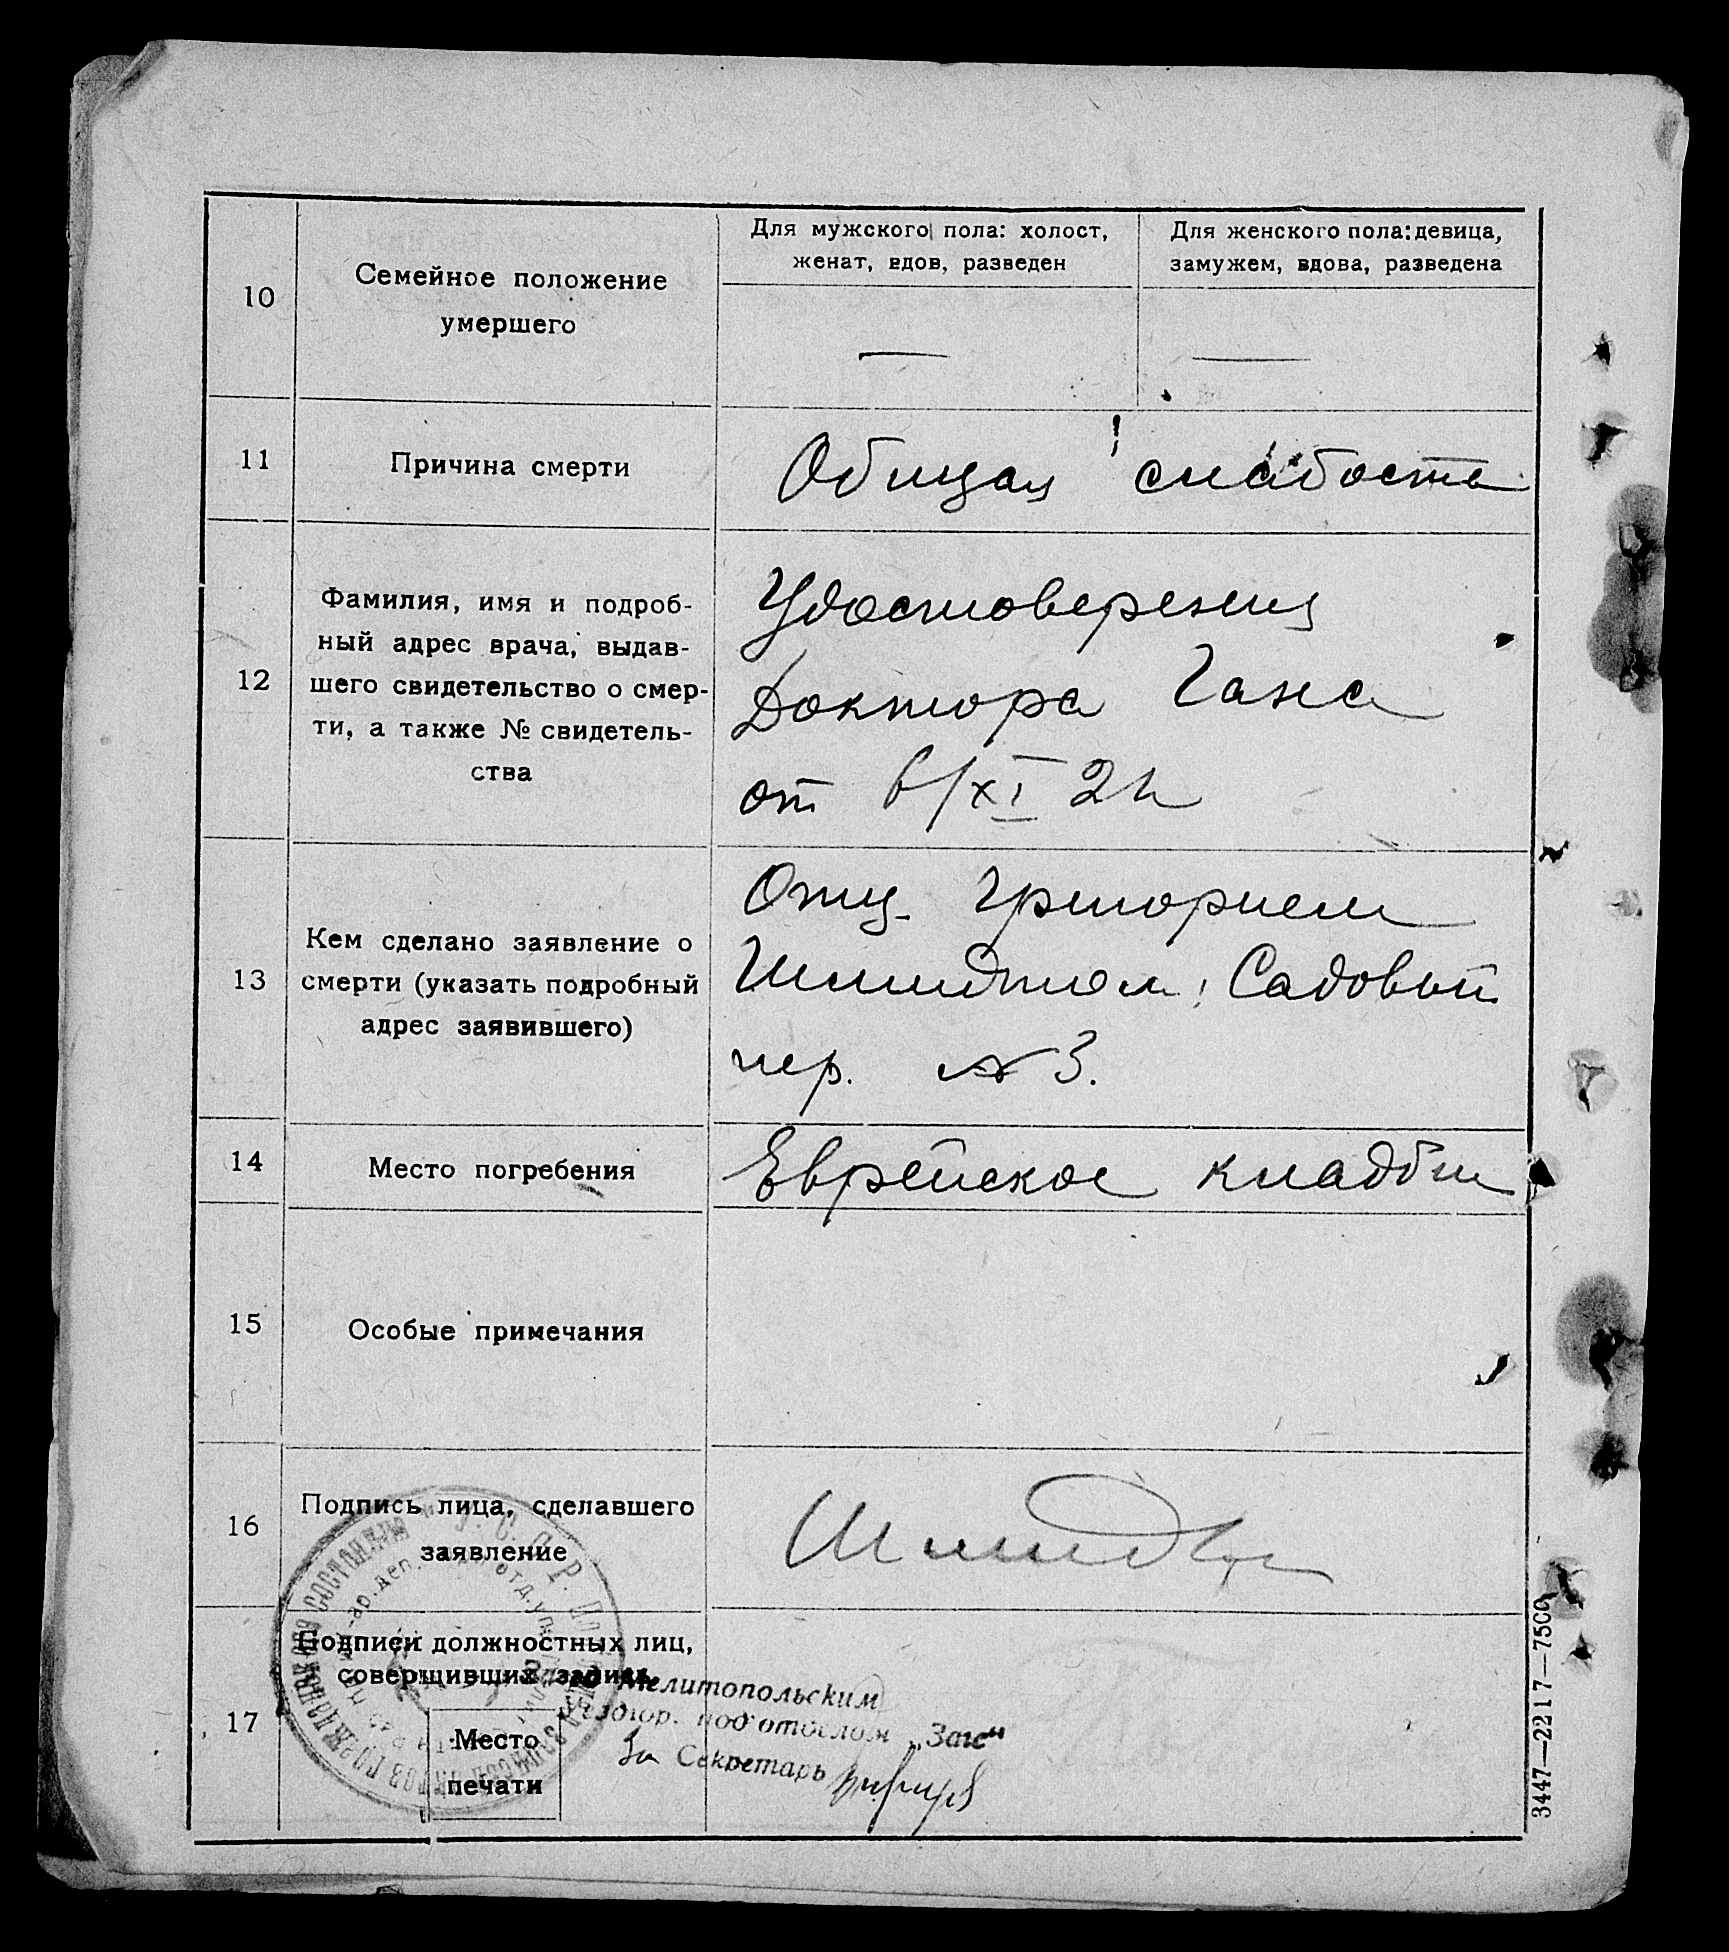 10
Семейное положение
умершего
Для мужского пола: холост,
женат, вдов, разведен
Для женского пола: девица,
замужем, вдова, разведена
—
—
11
Причина смерти
Общая слабость
12
Фамилия, имя и подроб-
ный адрес врача, выдав-
шего свидетельство о смер-
ти, а также № свидетель-
ства
Удостоверения
Доктора Гана
от 6/XI 2
13
Кем сделано заявление о
смерти (указать подробный
адрес заявившего)
Отц. Григорием
Шмидтом; Садовый
пер. № 3.
14
Место погребения
Еврейское кладби
15
Особые примечания
16
Подпись лица, сделавшего
заявление
Шмидт
17
Подписи должностных лиц,
совершивших запись
Место
печати
Мелитопольским
под'отделом „Загс"
За Секретарь
3447—2217—7500